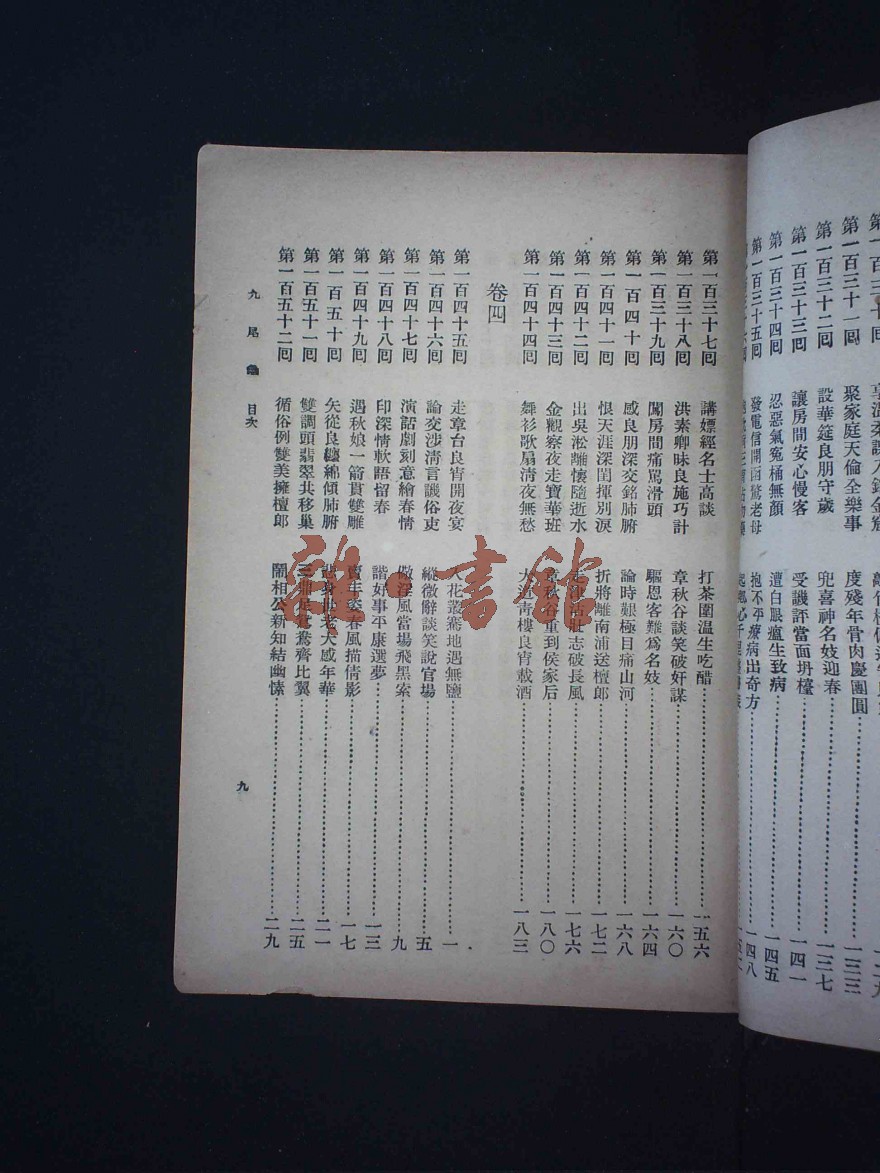 聚家庭天倫全樂事 度殘年骨肉慶團圓
第一百三十二回 設華筵良朋守歲 兜喜神名妓迎春 一三七
第一百三十三回 讓房間安心慢客 受譏評當面坍檯 一四一
第一百三十四回 忍惡氣冤桶無顏 遭白眼瘟生致病 一四五
第一百三十五回 發電信開函驚老母 抱不平療病出奇方 一四八
第一百三十七回 講嫖經名士高談 打茶圍温生吃醋 一五六
第一百三十八回 洪素卿昧良施巧計 章秋谷談笑破奸謀 一六〇
第一百三十九回 闖房間痛罵滑頭 驅恩客難爲名妓 一六四
第一百四十回 感良朋深交銘肺腑 論時艱極目痛山河 一六八
第一百四十一回 恨天涯深閨揮別淚 折將離南浦送檀郎 一七二
第一百四十二回 出吳淞離懷隨逝水 走津沽壯志破長風 一七六
第一百四十三回 金觀察夜走寶華班 章秋谷重到侯家后 一八〇
第一百四十四回 舞衫歌扇清夜無愁 大道青樓良宵載酒 一八三
卷四
第一百四十五回 走章台良宵開夜宴 入花叢驀地遇無鹽 一
第一百四十六回 論交涉清言譏俗吏 縱微辭談笑說官場 五
第一百四十七回 演話劇刻意繪春情 儆淫風當場飛黑索 九
第一百四十八回 印深情軟語留春 諧好事平康選夢 一三
第一百四十九回 遇秋娘一箭貫雙雕 賣丰姿春風描倩影 一七
第一百五十回 矢從良纏綿傾肺腑 悲身世老大感年華 二一
第一百五十一回 雙調頭翡翠共移巢 三鼎足鴛鴦齊比翼 二五
第一百五十二回 循俗例雙美擁檀郎 鬧相公新知結幽愫 二九
九尾龜 目次
九
雜·書館